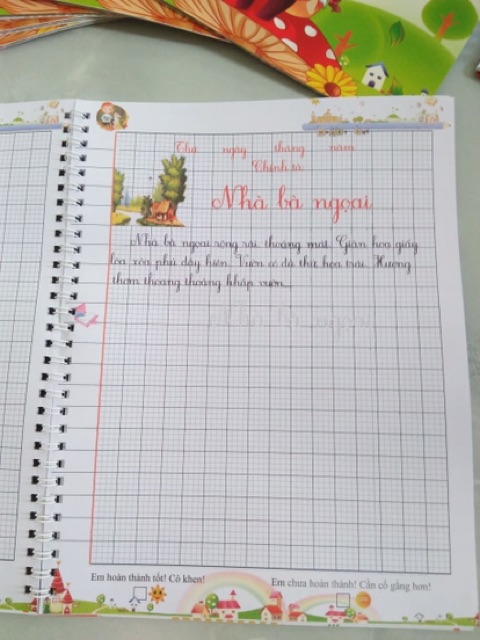 Thứ ngày tháng năm
Chính tả
Nhà bà ngoại
Nhà bà ngoại rộng rãi thoáng mát. Giàn hoa giấy
lòa xòa phủ đầy hiên. Vườn có đủ thứ hoa trái. Hương
thơm thoang thoảng khắp vườn.
Em hoàn thành tốt! Cô khen!
Em chưa hoàn thành! Cần cố gắng hơn!